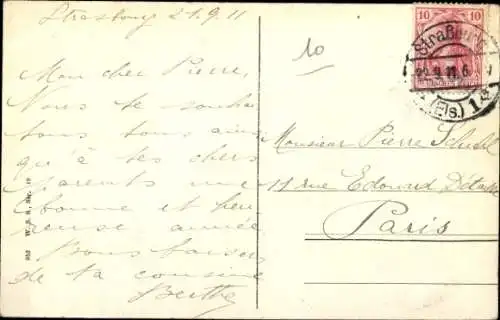 Strasbourg 21.9.11
Mon cher Pierre,
Nous te souhai
tons tous ainsi
qu'à tes chers
parents une
bonne et heu
reuse année
Bons baisers
de ta cousine
Berthe
10
10 10
Straßburg
22.9.11.6
(Els.) 1
Monsieur Pierre
11 rue Edouard Détaille
Paris